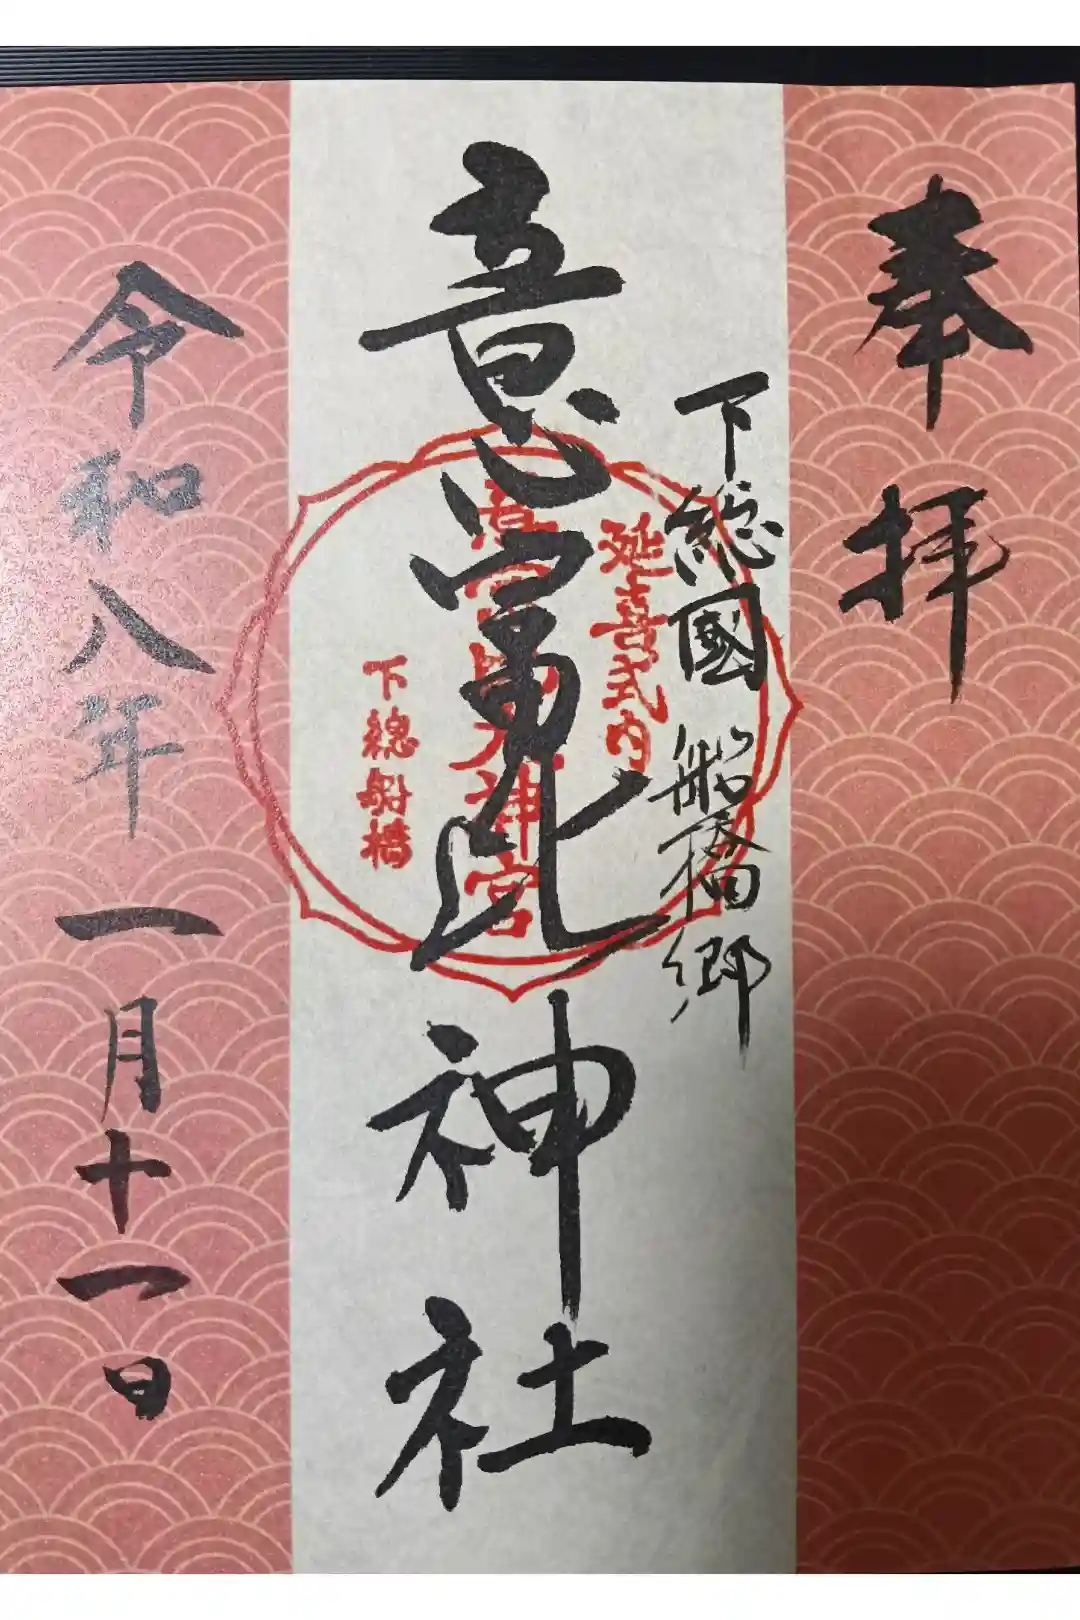 奉拝
下総國船橋郷
意富比神社
延喜式内
神宮
下總船橋
令和八年一月十一日